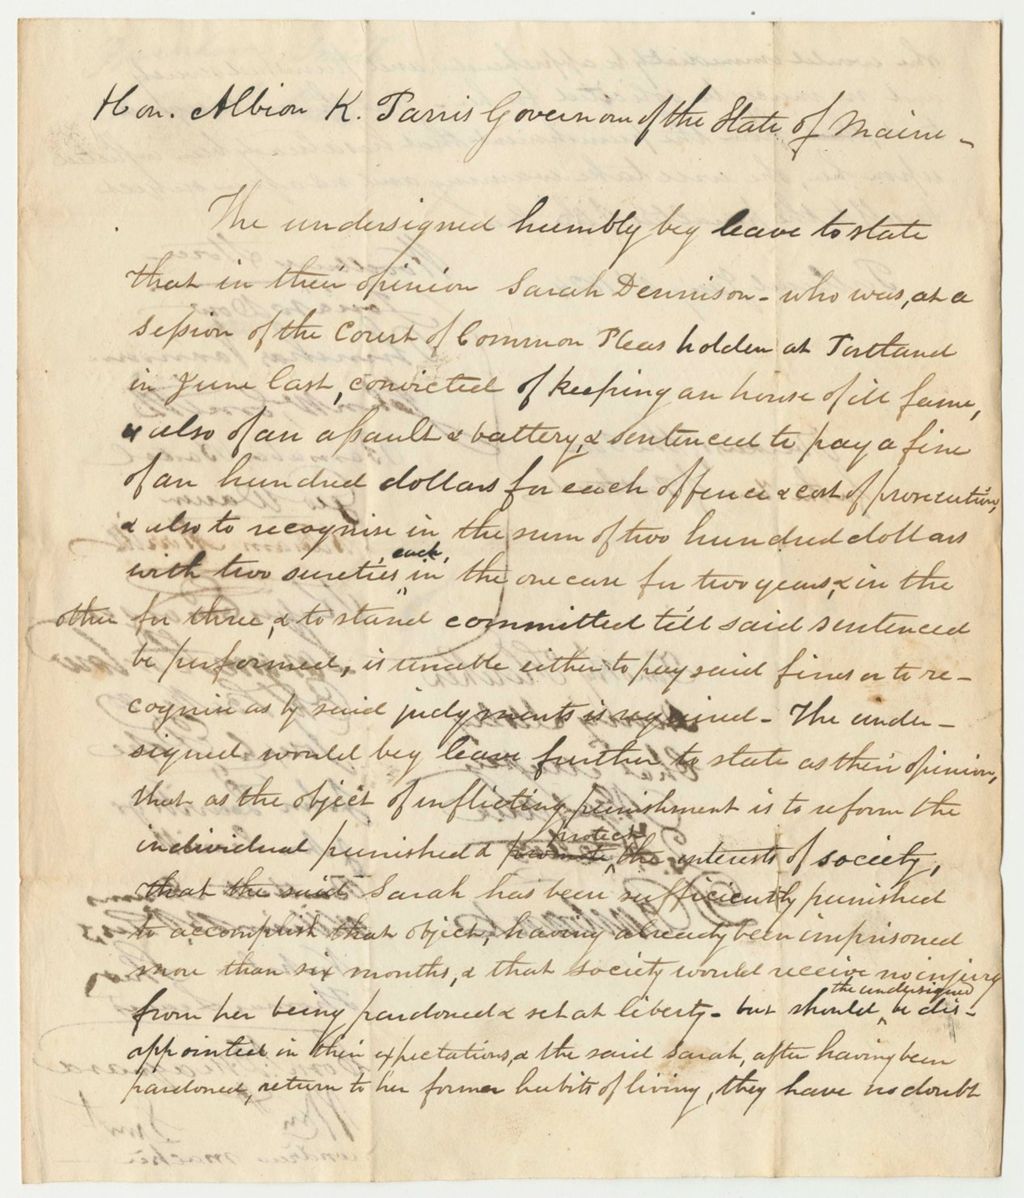 Hon. Albion K. Parris Governour of the State of Maine -
The undersigned humbly beg leave to state
that in their opinion Sarah Dennison - who was, at a
session of the Court of Common Pleas holden at Portland
in June last, convicted of keeping an house of ill fame,
& also of an assault & battery, & sentenced to pay a fine
of an hundred dollars for each offence & cost of prosecution,
& also to recognise in the sum of two hundred dollars
with two sureties each, in the one case for two years, & in the
other for three, & to stand committed till said sentenced
be performed, is unable either to pay said fines or to re-
cognise as by said judgments is required - The under-
signed would beg leave further to state as their opinion,
that as the object of inflicting punishment is to reform the
individual punished & promote protect the interests of society,
that the said Sarah has been sufficiently punished
to accomplish that object, having already been imprisoned
more than six months, & that society would receive no injury
from her being pardoned & set at liberty - but should the undersigned be dis-
appointed in their expectations, & the said Sarah, after having been
pardoned, return to her former habits of living, they have no doubt